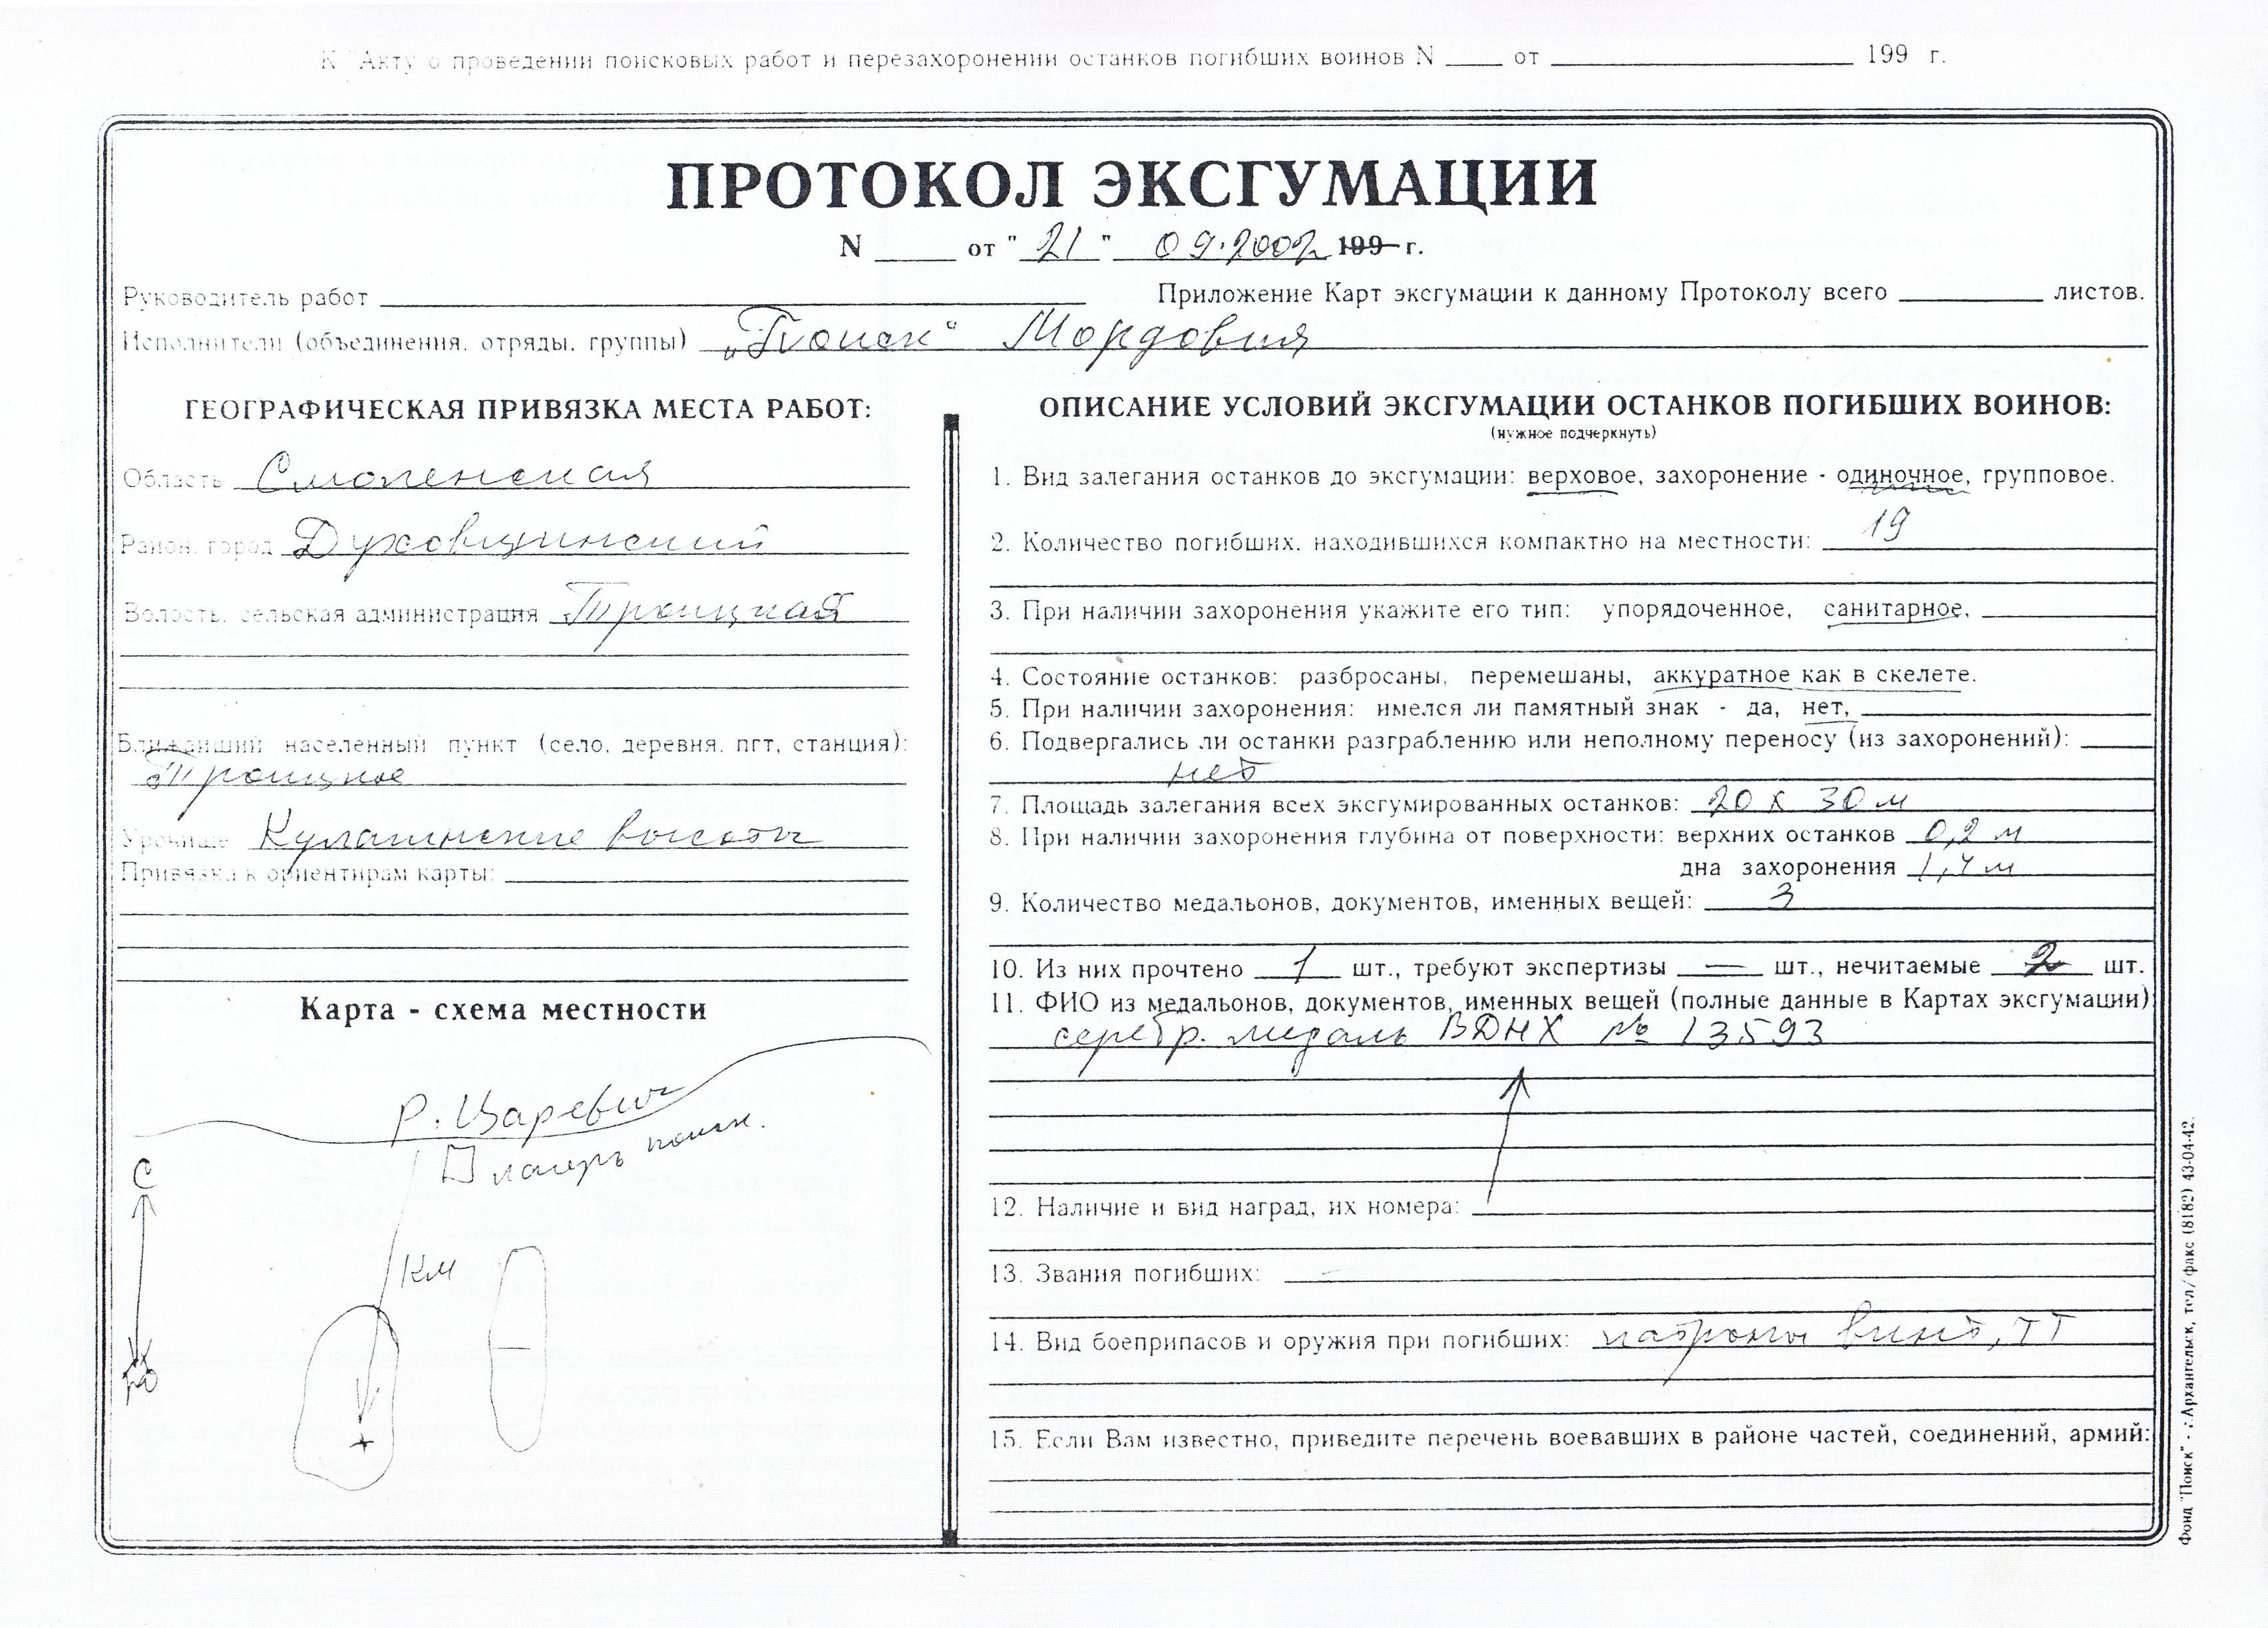 К "Акту о проведении поисковых работ и перезахоронении останков погибших воинов N ____ от ____ 199 г.
ПРОТОКОЛ ЭКСГУМАЦИИ
N ____ от "21" 09.2002 199 г.
Руководитель работ ____ Приложение Карт эксгумации к данному Протоколу всего ____ листов.
Исполнители (объединения, отряды, группы) „Поиск“ Мордовия
ГЕОГРАФИЧЕСКАЯ ПРИВЯЗКА МЕСТА РАБОТ:
Область Смоленская
Район, город Духовщинский
Волость, сельская администрация Троицкая
Ближайший населенный пункт (село, деревня, пгт, станция):
Троицкое
Урочище Кулагинские высоты
Привязка к ориентирам карты:
Карта - схема местности
Р. Царевич
лагерь поиск.
С
КМ
Ю
ОПИСАНИЕ УСЛОВИЙ ЭКСГУМАЦИИ ОСТАНКОВ ПОГИБШИХ ВОИНОВ:
(нужное подчеркнуть)
1. Вид залегания останков до эксгумации: верховое, захоронение - одиночное, групповое.
2. Количество погибших, находившихся компактно на местности: 19
3. При наличии захоронения укажите его тип: упорядоченное, санитарное,
4. Состояние останков: разбросаны, перемешаны, аккуратное как в скелете.
5. При наличии захоронения: имелся ли памятный знак - да, нет,
6. Подвергались ли останки разграблению или неполному переносу (из захоронений):
нет
7. Площадь залегания всех эксгумированных останков: 20 х 30 м
8. При наличии захоронения глубина от поверхности: верхних останков 0,2 м
дна захоронения 1,4 м
9. Количество медальонов, документов, именных вещей: 3
10. Из них прочтено 1 шт., требуют экспертизы — шт., нечитаемые 2 шт.
11. ФИО из медальонов, документов, именных вещей (полные данные в Картах эксгумации)
серебр. медаль ВДНХ № 13593
12. Наличие и вид наград, их номера:
13. Звания погибших: —
14. Вид боеприпасов и оружия при погибших: патроны винт, ТТ
15. Если Вам известно, приведите перечень воевавших в районе частей, соединений, армий:
Фонд "Поиск" г. Архангельск, тел/факс (8182) 43-04-42.